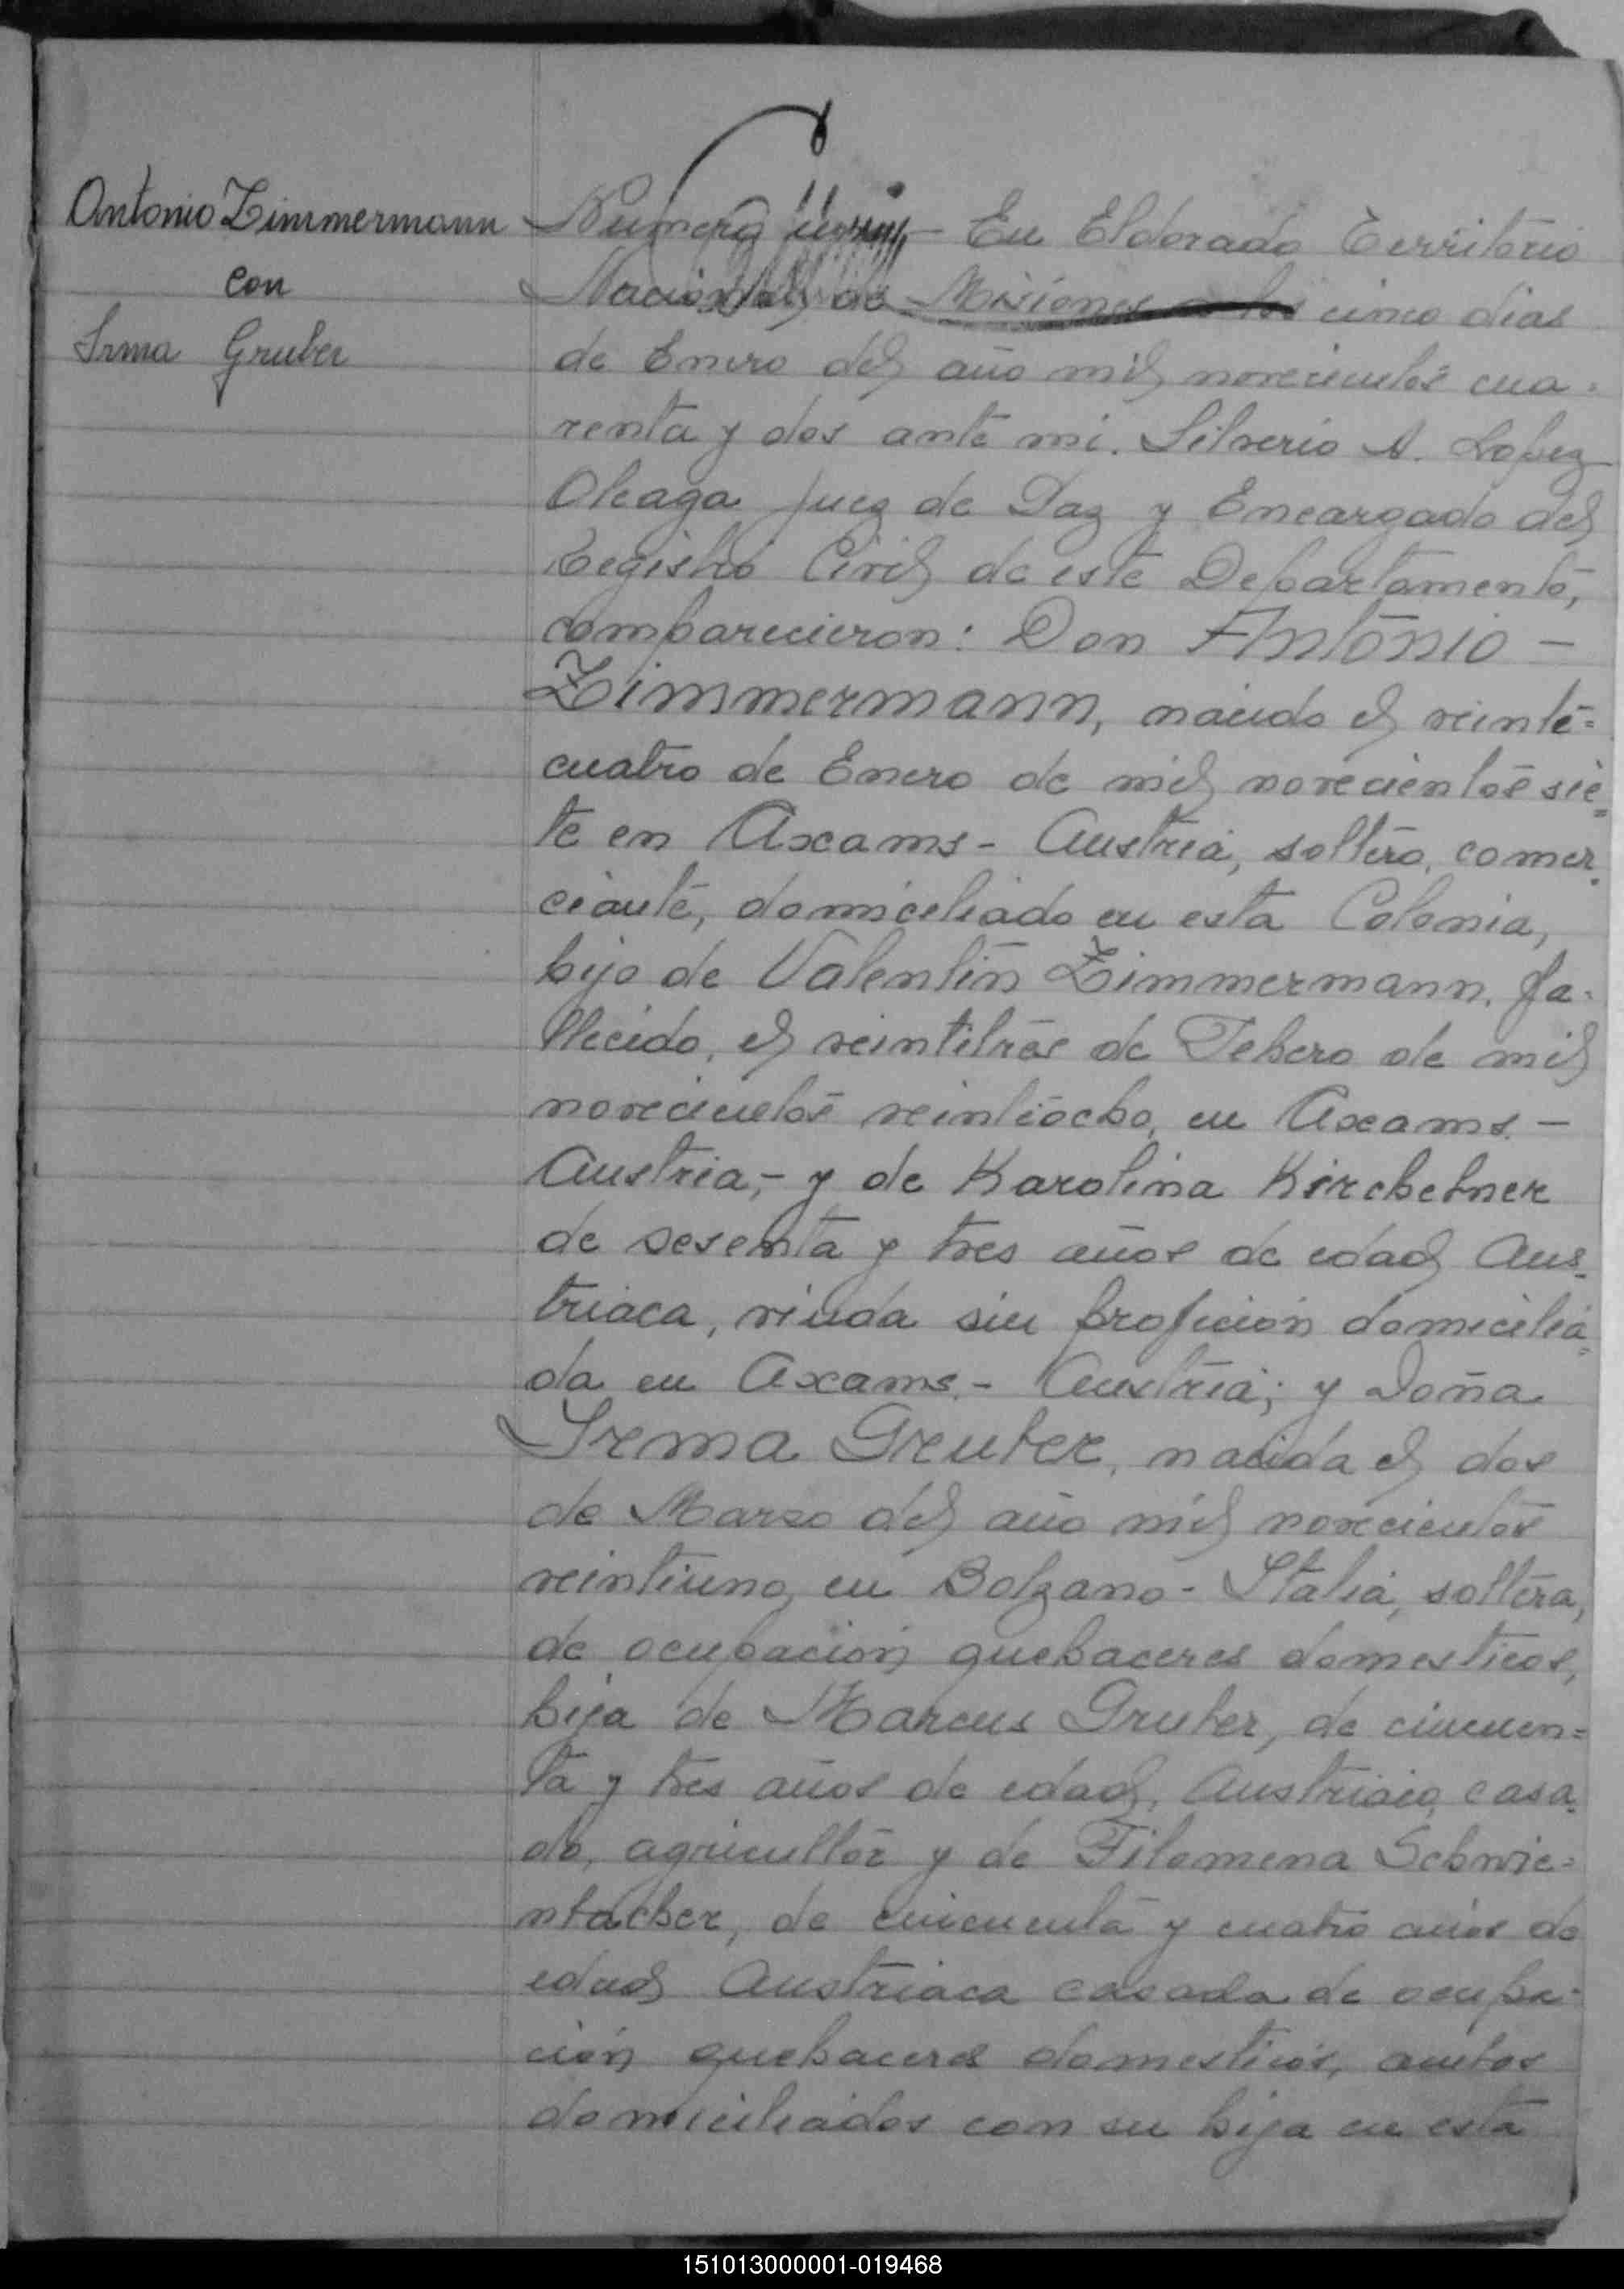 Antonio Zimmermann
con
Irma Gruber
Numero - En Eldorado Territorio
Nacional de Misiones a los cinco dias
de Enero del año mil novecientos cua-
renta y dos ante mi. Silverio A. Lopez
Oleaga Juez de Paz y Encargado del
Registro Civil de este Departamento,
comparecieron: Don Antonio -
Zimmermann, nacido el veinte=
cuatro de Enero de mil novecientos sie=
te en Axams - Austria, soltero, comer=
ciante, domiciliado en esta Colonia,
hijo de Valentin Zimmermann, fa-
llecido, el veintitres de Febero de mil
novecientos veintiocho, en Axams. -
Austria, - y de Karolina Kirchebner
de sesenta y tres años de edad Aus=
triaca, viuda sin profición domicilia=
da en Axams. - Austria; y Doña
Irma Gruber, nacida el dos
de Marzo del año mil novecientos
veintiuno, en Bolzano - Italia, soltera,
de ocupación quehaceres domesticos,
hija de Marcus Gruber, de cincuen=
ta y tres años de edad, Austriaco, casa=
do, agricultor y de Filomena Schwie=
nbacher, de cincuenta y cuatro años de
edad Austriaca casada de ocupa-
ción quehaceres domesticos, ambos
domiciliados con su hija en esta
151013000001-019468